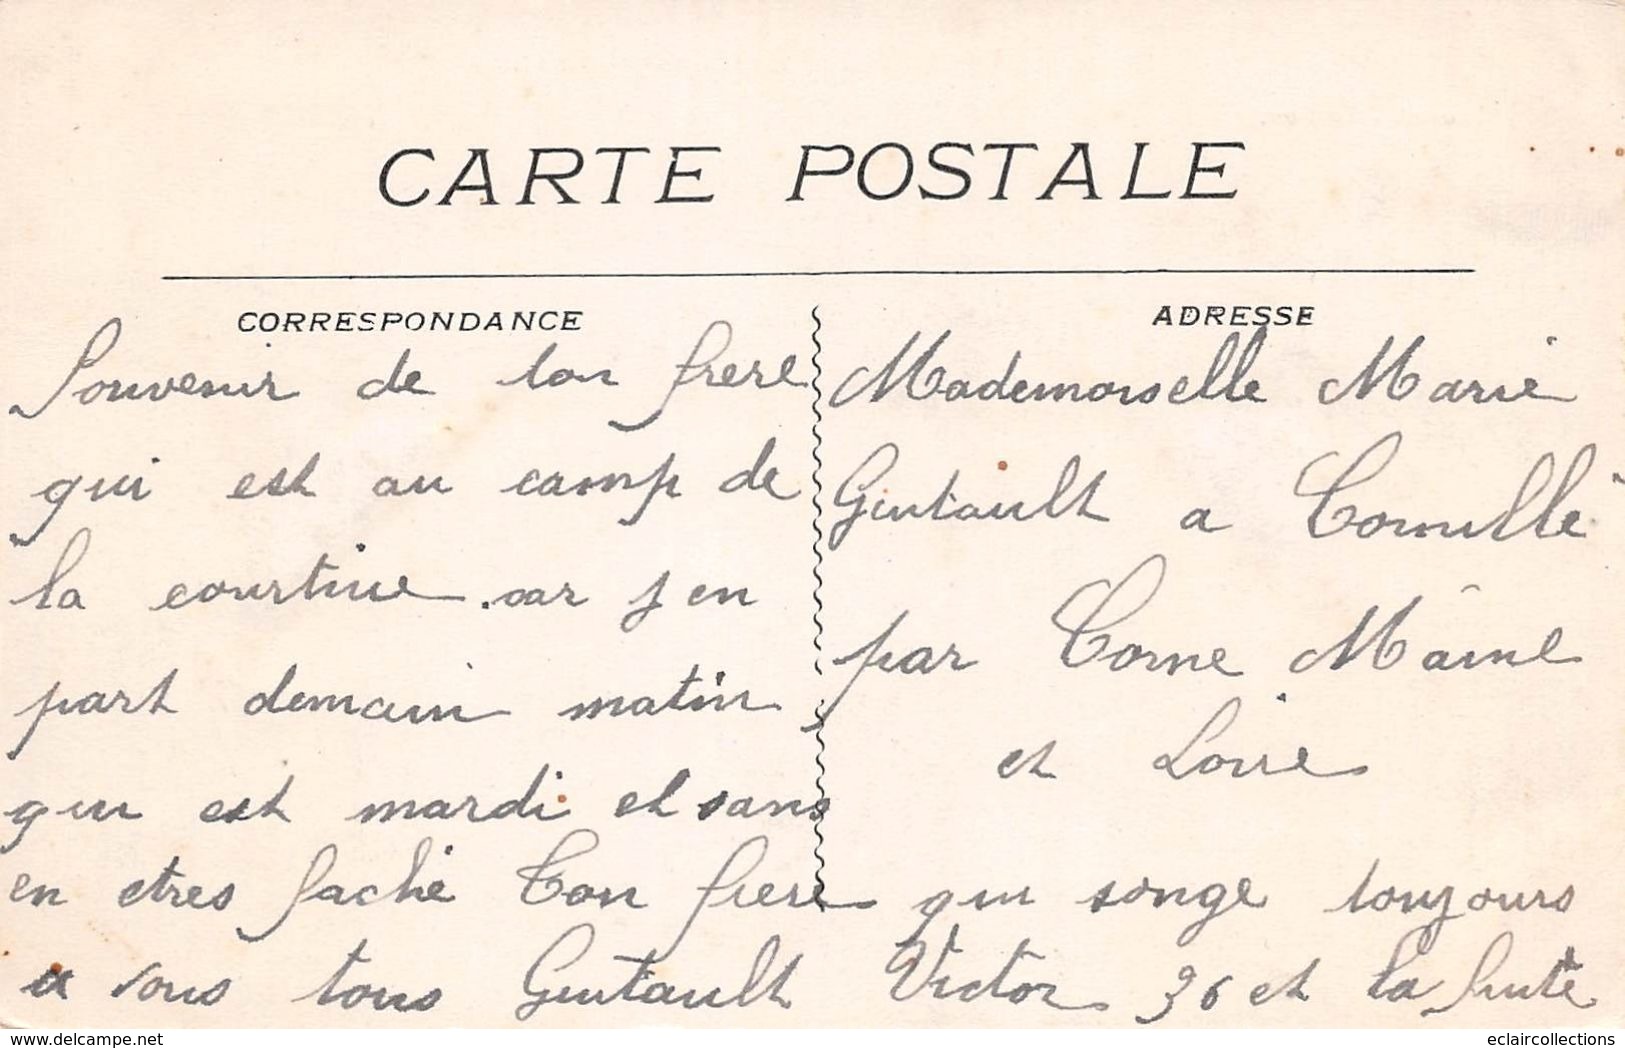 CARTE POSTALE
CORRESPONDANCE
Souvenir de ton frere
qui est au camp de
la courtine. car j en
part demain matin,
qui est mardi et sans
en etres faché Ton frere qui songe toujours
a vous tous Guitault Victor 36 et la fuite
ADRESSE
Mademoiselle Marie
Guitault a Cornillé
par Corne Maine
et Loire
eclaircollections
www.delcampe.net